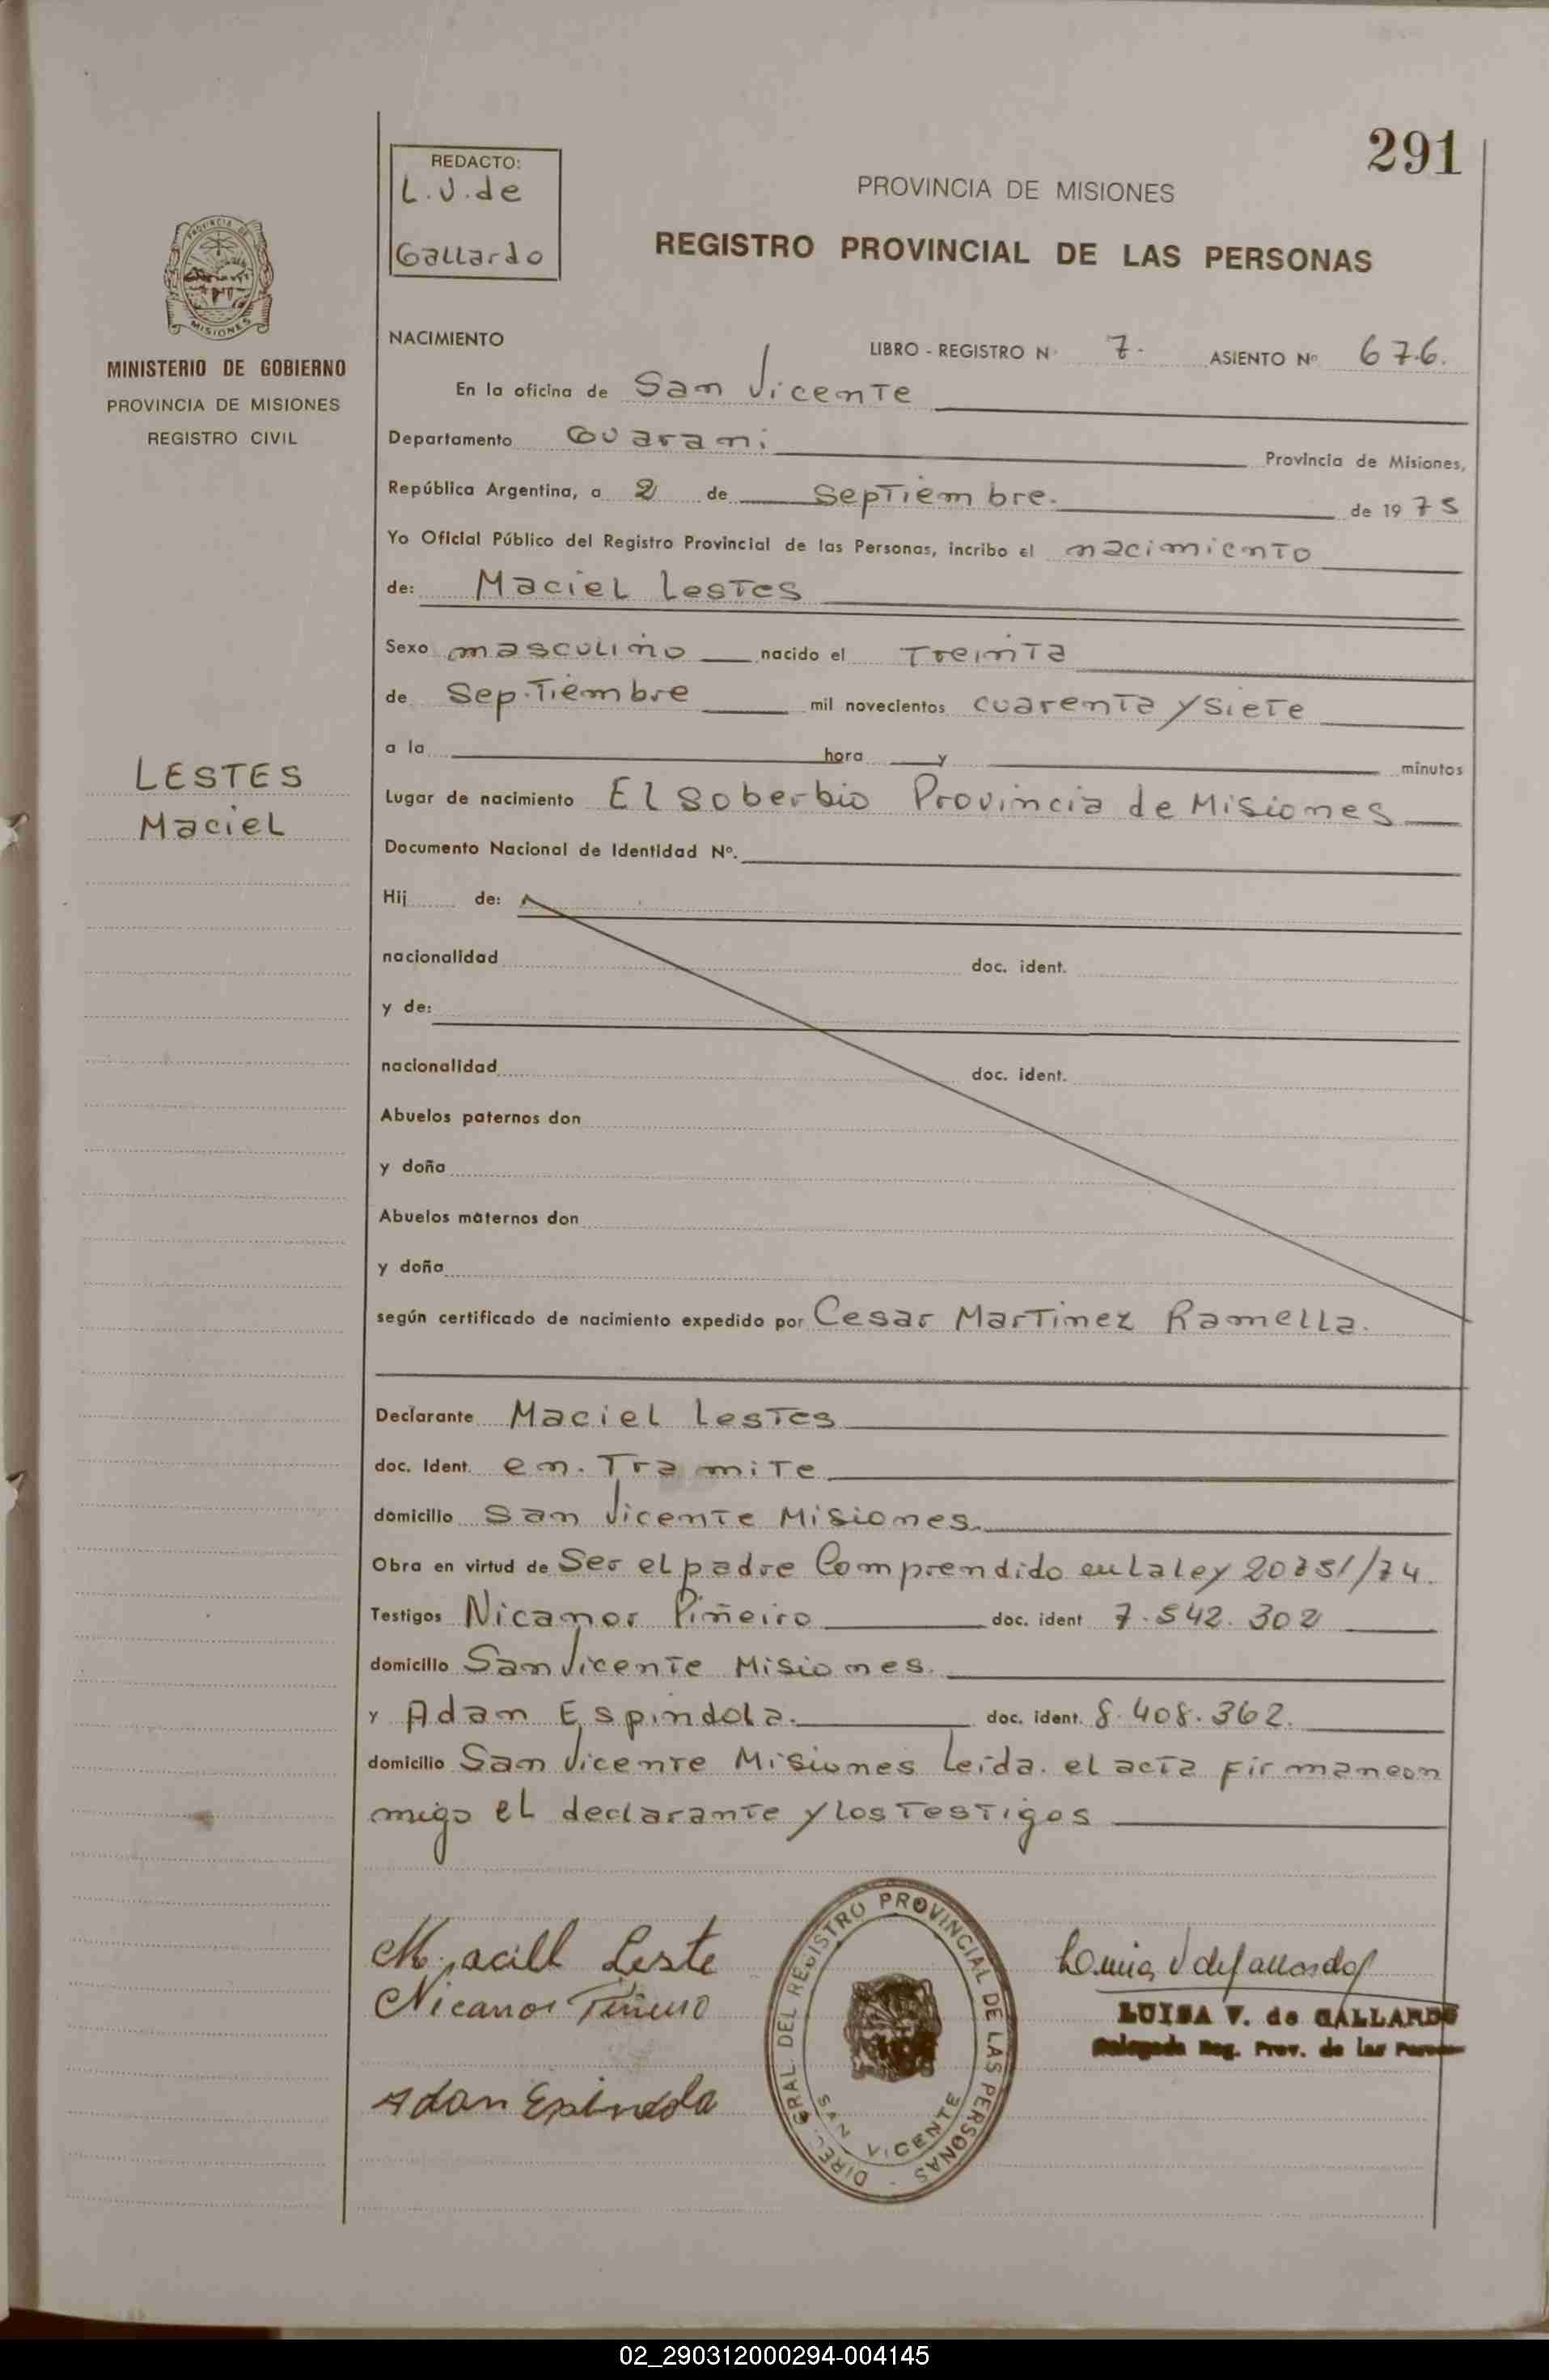 291
REDACTO:
L.V. de
Gallardo
PROVINCIA DE MISIONES
REGISTRO PROVINCIAL DE LAS PERSONAS
PROVINCIA DE
MISIONES
MINISTERIO DE GOBIERNO
PROVINCIA DE MISIONES
REGISTRO CIVIL
NACIMIENTO
LIBRO - REGISTRO Nº 7. ASIENTO Nº 676.
En la oficina de San Vicente
Departamento Guarani Provincia de Misiones,
República Argentina, a 2 de Septiembre. de 1975
Yo Oficial Público del Registro Provincial de las Personas, incribo el nacimiento
de: Maciel Lestes
Sexo masculino nacido el Treinta
de Septiembre mil novecientos cuarenta y siete
a la hora y minutos
LESTES
Maciel
Lugar de nacimiento El Soberbio Provincia de Misiones
Documento Nacional de Identidad Nº.
Hij de:
nacionalidad doc. ident.
y de:
nacionalidad doc. ident.
Abuelos paternos don
y doña
Abuelos maternos don
y doña
según certificado de nacimiento expedido por Cesar Martinez Ramella.
Declarante Maciel Lestes
doc. Ident. en. Tramite
domicilio San Vicente Misiones.
Obra en virtud de Ser el padre Comprendido en La Ley 20751/74.
Testigos Nicanor Piñeiro doc. ident 7.542.302
domicilio San Vicente Misiones.
y Adam Espindola. doc. ident. 8.408.362.
domicilio San Vicente Misiones Leida. el acta firman con
migo el declarante y los Testigos
M.acill Leste
Nicanor Piñeiro
Adan Espindola
DIREC. GRAL. DEL REGISTRO PROVINCIAL DE LAS PERSONAS -
SAN VICENTE
Luisa V de Gallardo
LUISA V. de GALLARDO
Delegada Reg. Prov. de las Personas
02_290312000294-004145